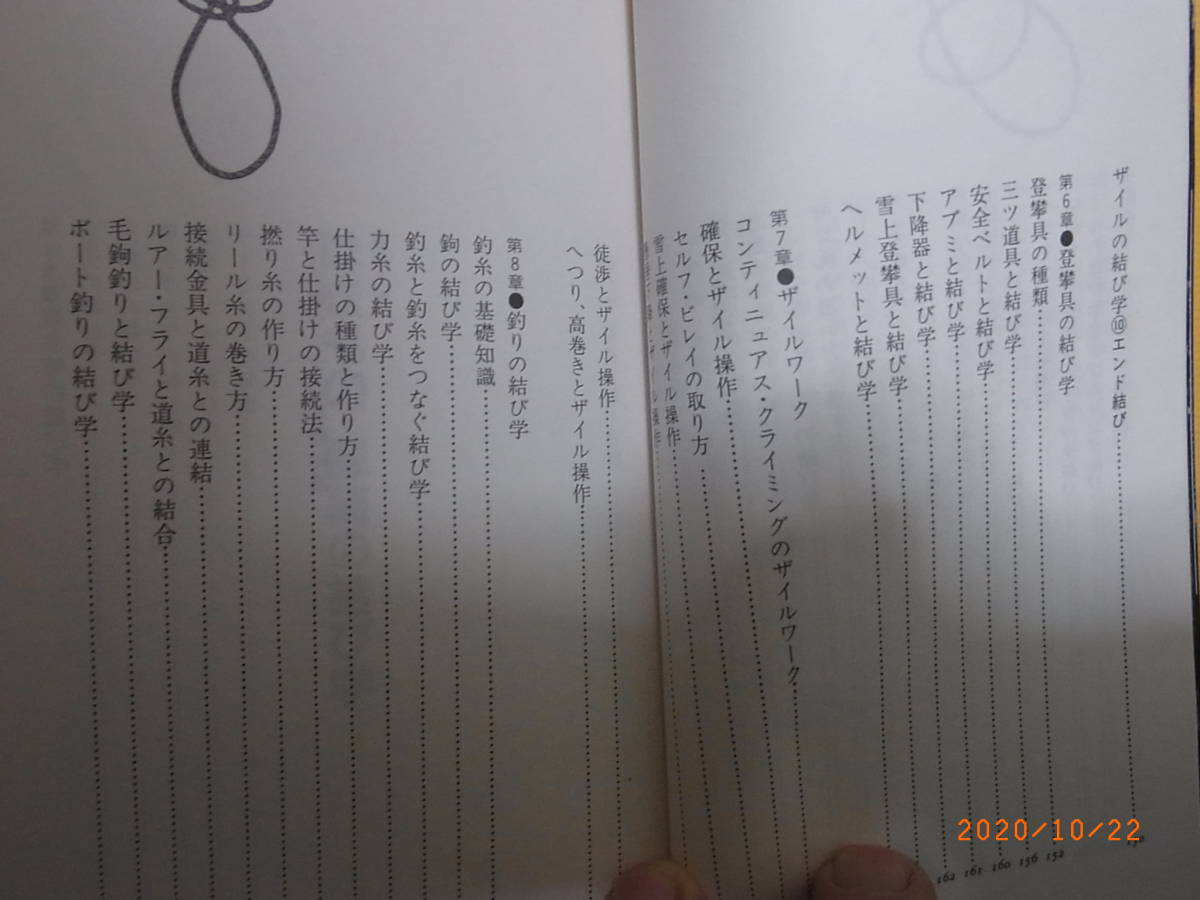 ザイルの結び学⑩エンド結び
第6章●登攀具の結び学
登攀具の種類 152
三ツ道具と結び学 156
安全ベルトと結び学 160
アブミと結び学 161
下降器と結び学 162
雪上登攀具と結び学
ヘルメットと結び学
第7章●ザイルワーク
コンティニュアス・クライミングのザイルワーク
確保とザイル操作
セルフ・ビレイの取り方
雪上確保とザイル操作
徒渉とザイル操作
へつり、高巻きとザイル操作
第8章●釣りの結び学
釣糸の基礎知識
鉤の結び学
釣糸と釣糸をつなぐ結び学
力糸の結び学
仕掛けの種類と作り方
竿と仕掛けの接続法
撚り糸の作り方
リール糸の巻き方
接続金具と道糸との連結
ルアー・フライと道糸との結合
毛鉤釣りと結び学
ボート釣りの結び学
2020/10/22